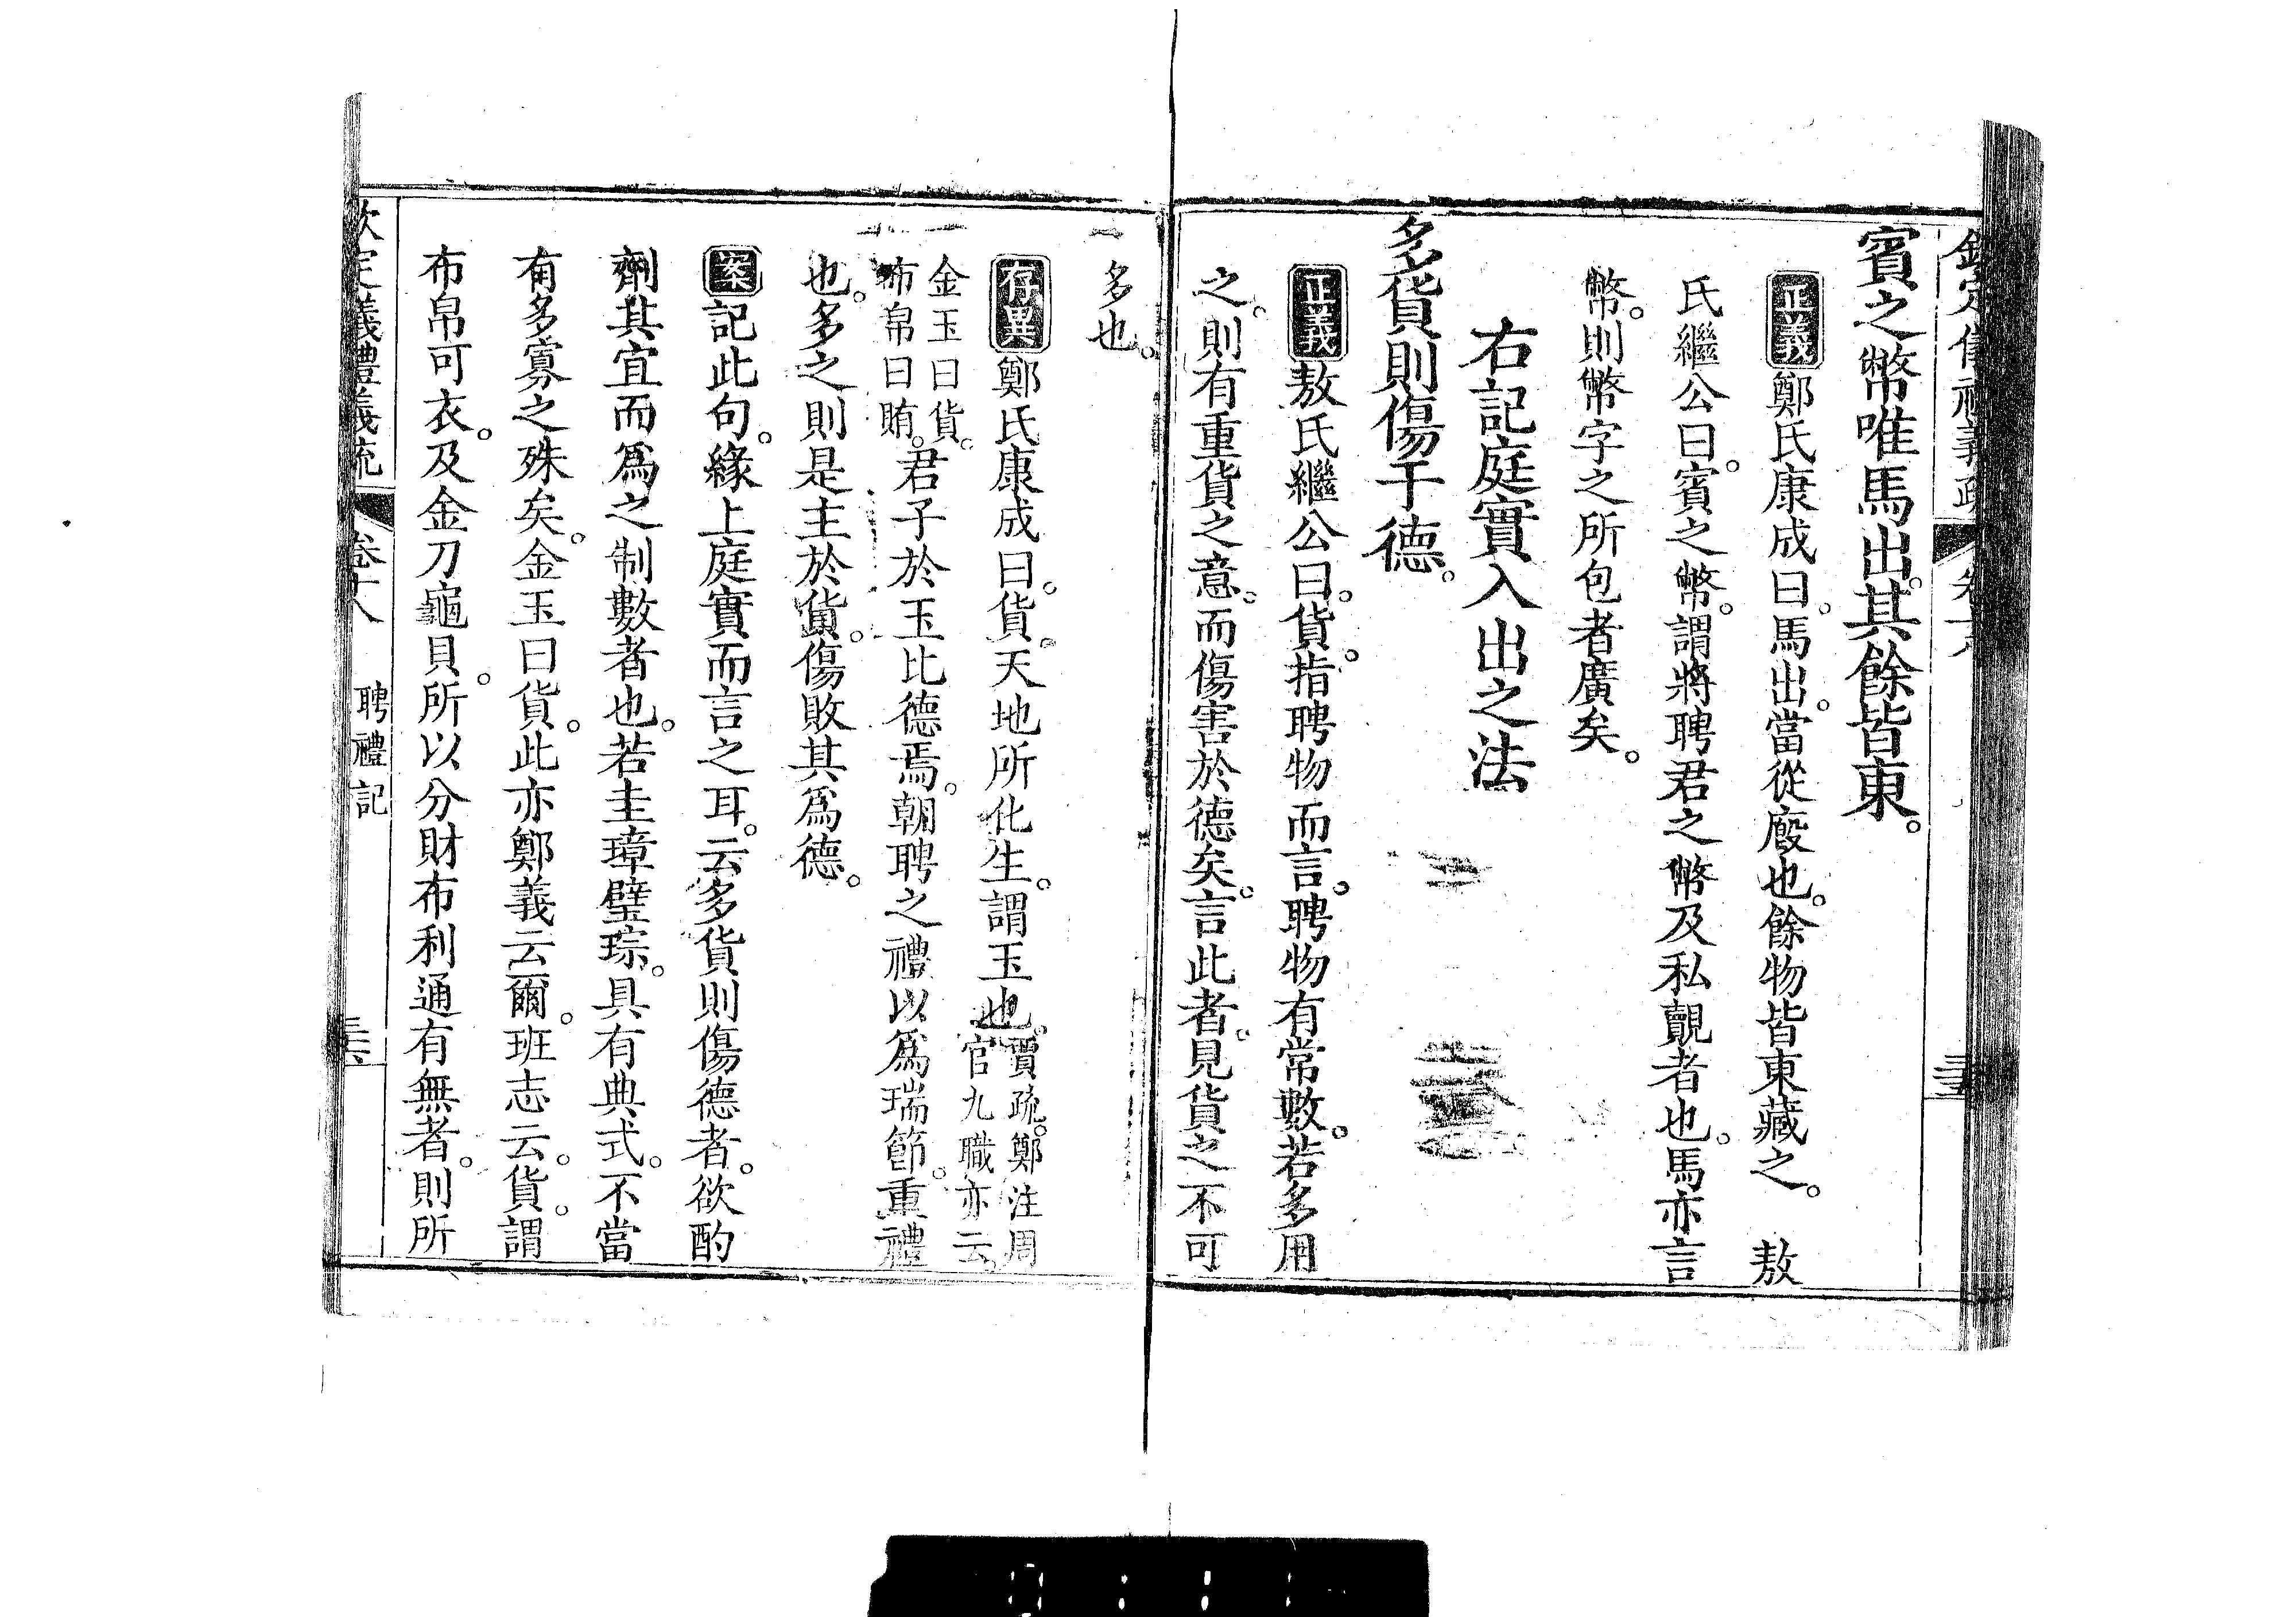 賓之幣唯馬出。其餘皆東。
正義鄭氏康成曰。馬出。當從廄也。餘物皆東藏之。 敖
氏繼公曰。賓之幣。謂將聘君之幣及私覿者也。馬亦言
幣。則幣字之所包者廣矣。
右記庭實入出之法
多貨則傷于德。
正義敖氏繼公曰。貨。指聘物而言。聘物有常數。若多用
之。則有重貨之意。而傷害於德矣。言此者。見貨之不可
多也。
存異鄭氏康成曰。貨。天地所化生。謂玉也。賈疏。鄭注周官九職亦云。
金玉曰貨。布帛曰賄。君子於玉比德焉。朝聘之禮以爲瑞節。重禮
也。多之則是主於貨。傷敗其爲德。
案記此句。緣上庭實而言之耳。云多貨則傷德者。欲酌
劑其宜而爲之制數者也。若圭璋璧琮。具有典式。不當
有多寡之殊矣。金玉曰貨。此亦鄭義云爾。班志云。貨。謂
布帛可衣。及金刀龜貝。所以分財布利通有無者。則所
欽定儀禮義疏 卷十八 聘禮記